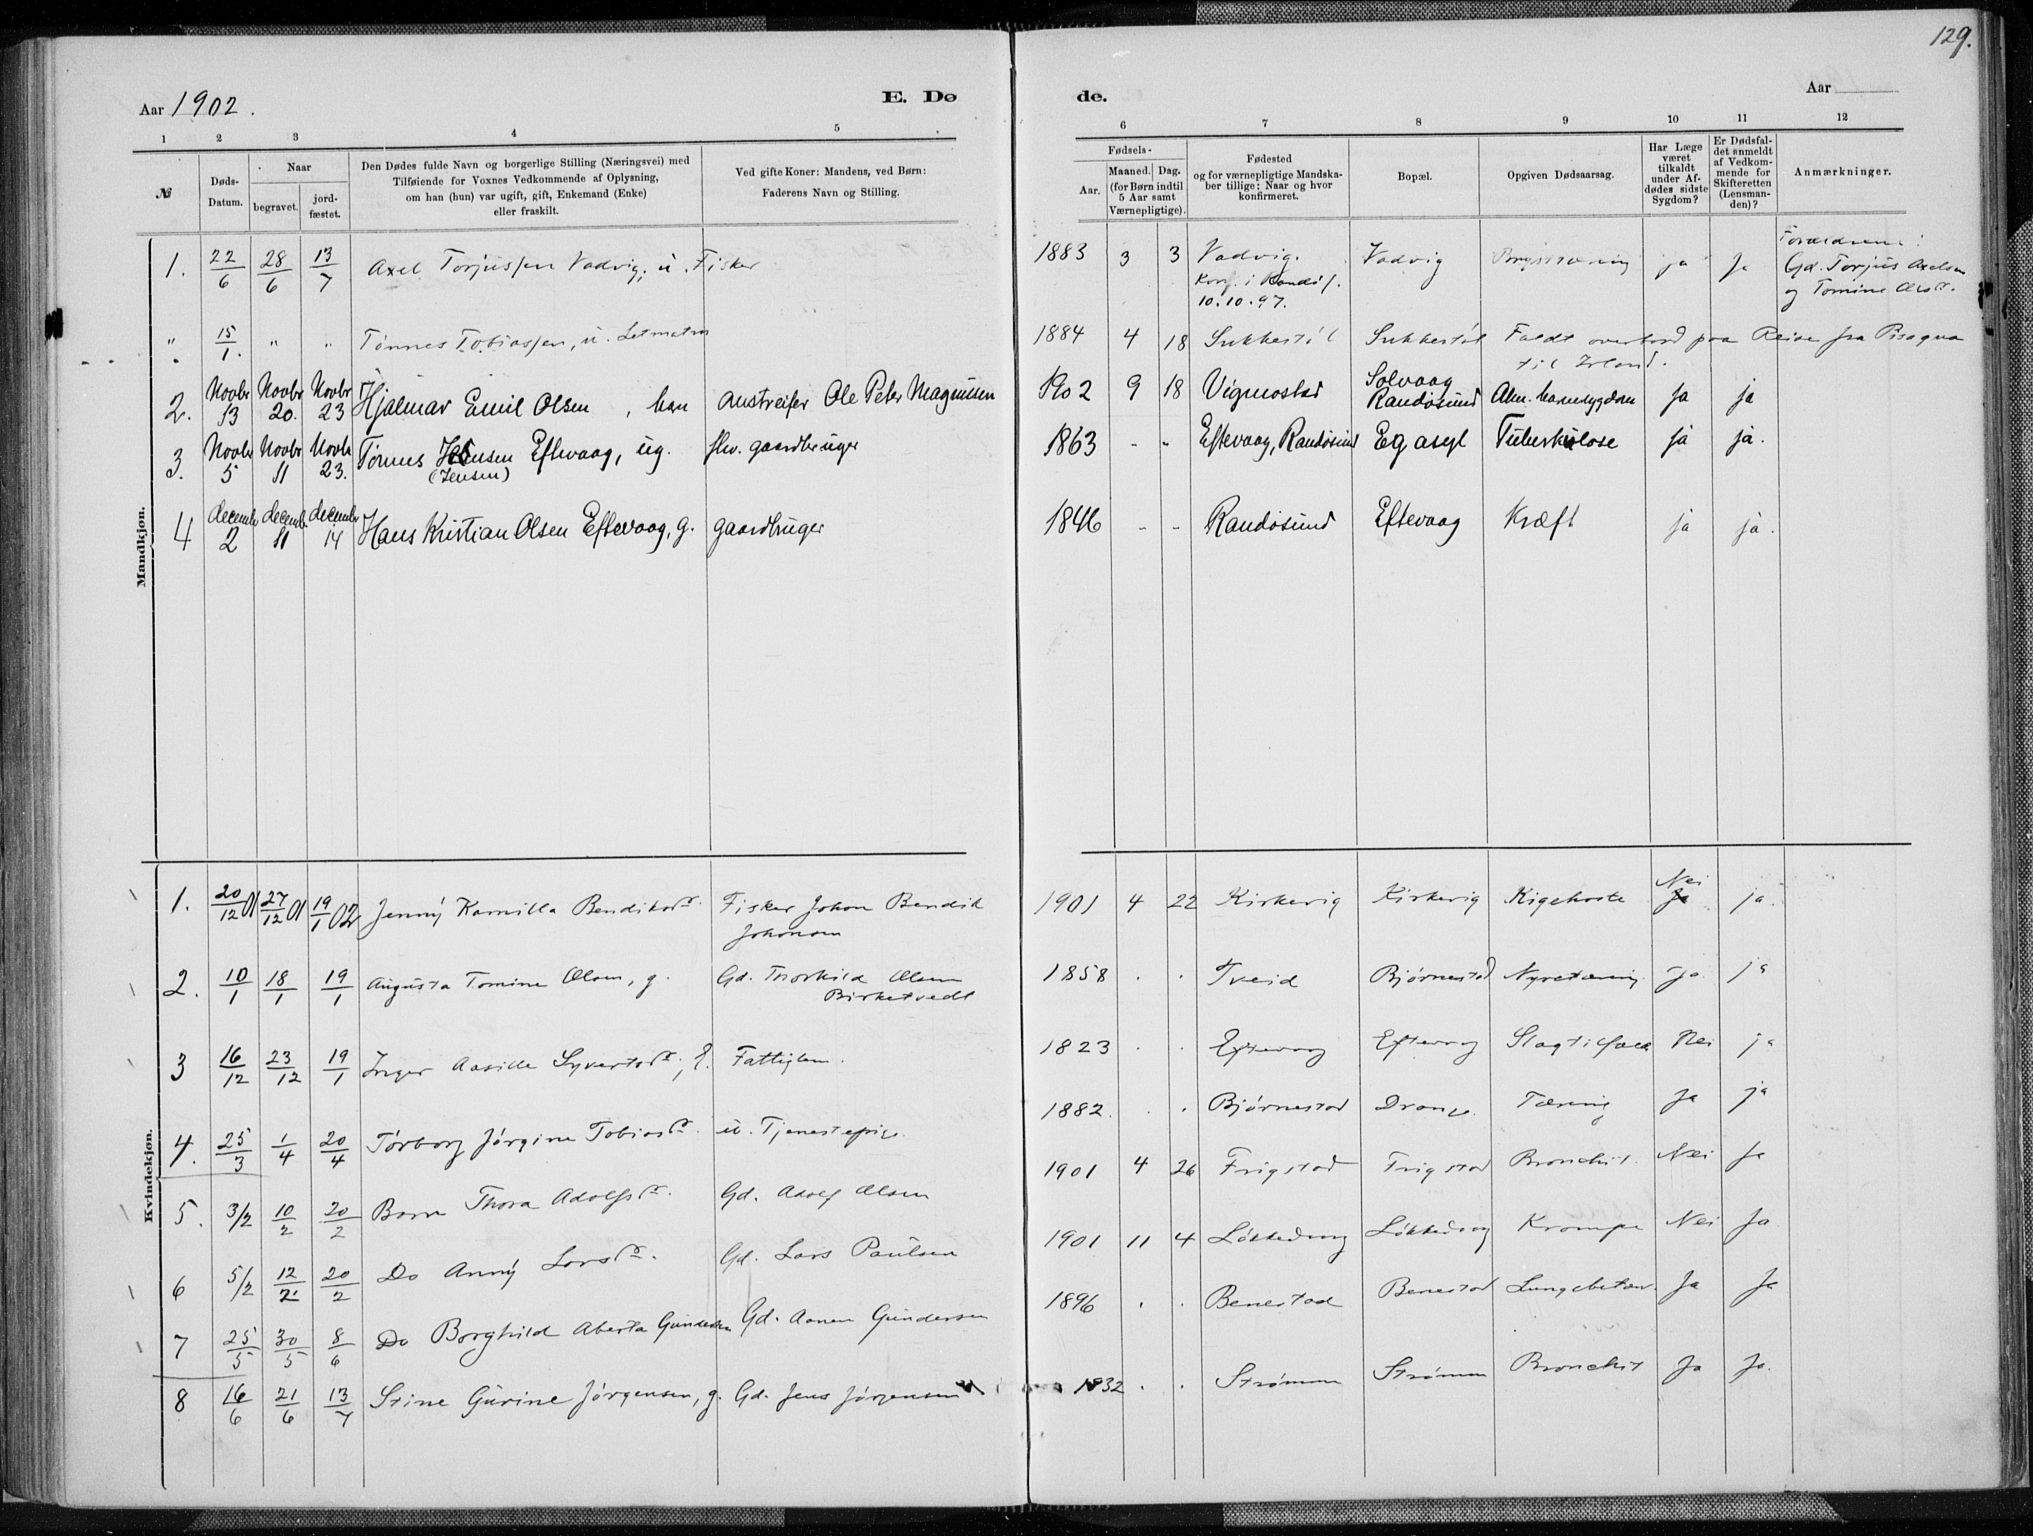 129.
Aar 1902.
E. Dø
de.
Aar
1 2 3 4 5
6 7 8 9 10 11 12
№
Døds-Datum.
Naar
begravet.
jord-fæstet.
Den Dødes fulde Navn og borgerlige Stilling (Næringsvei) med
Tilføiende for Voxnes Vedkommende af Oplysning,
om han (hun) var ugift, gift, Enkemand (Enke)
eller fraskilt.
Ved gifte Koner: Mandens, ved Børn:
Faderens Navn og Stilling.
Fødsels-
Aar.
Maaned. Dag.
(for Børn indtil
5 Aar samt
Værnepligtige).
Fødested
og for værnepligtige Mandska-
ber tillige: Naar og hvor
konfirmeret.
Bopæl.
Opgiven Dødsaarsag.
Har Læge
været
tilkaldt
under Af-
dødes sidste
Sygdom?
Er Dødsfal-
det anmeldt
af Vedkom-
mende for
Skifteretten
(Lensman-
den)?
Anmærkninger.
Mandkjøn.
1. 22/6 28/6 13/7 Axel Torjussen Vadvig, u. Fisker 1883 3 3 Vadvig. Konf. i Randøs. 10.10.97. Vadvig Brysttæring ja Ja Forældrene: Gd. Torjus Axelsen og Tomine Olsdr.
" 15/1. " " Tønnes Tobiassen, u. Letmatros 1884 4 18 Sukkestøl Sukkestøl Faldt overbord paa Reise fra Pisagua til Irland.
2. Novbr 13 Novbr 20. Novbr 23 Hjalmar Emil Olsen, barn Omstreifer Ole Peter Magnussen 1902 9 18 Vigmostad Solvaag Randøsund Alm. barnesygdom ja ja
3. Novbr 5 Novbr 11 Novbr 23. Tønnes Jensen Eftevaag, ug. (Jensen) fhv. gaardbruger 1863 - - Eftevaag, Randøsund Eg asyl Tuberkulose ja ja.
4 decembr 2 decembr 11 decembr 14 Hans Kristian Olsen Eftevaag, g. gaardbruger 1846 - - Randøsund Eftevaag Kræft ja ja.
Kvindekjøn.
1. 20/12 01 27/12 01 19/1 02 Jenny Kamilla Bendiksdr. Fisker Johan Bendik Johansen 1901 4 22 Kirkevig Kirkevig Kighoste Nei Ja ja.
2. 10/1 18/1 19/1 Augusta Tomine Olsen, g. Gd. Thorkild Olsen Birketvedt 1858 . . Tveid Bjørnestad Nyretæring Ja ja
3 16/12 23/12 19/1 Inger Aasille Syvertsdr., E. Fattiglem. 1823 . . Eftevag Eftevag Slagtilfælde Nei ja
4. 25/3 1/4 20/4 Torborg Jørgine Tobiasdr. u. Tjenestepige. 1882. . . Bjørnestad Drange Tæring Ja ja
5. 3/2 10/2 20/2 Barn Thora Adolfsdr. Gd. Adolf Olsen 1901 4 26 Frigstad Frigstad Bronchit. Nei Ja
6 5/2 12/2 20/2 Do Anny Larsdr. Gd. Lars Paulsen 1901 11 4 Løkkedvug Løkkedvag Krampe Nei Ja
7 25/5 30/5 8/6 Do Borghild Aberta Gundersen Gd. Aanen Gundersen 1896 . . Benestad Benestad Lungebetæn. Ja Ja
8 16/6 21/6 13/7 Stine Gurine Jørgensen, g. Gd. Jens Jørgensen 1832 . . Strømme Strømme Bronchit Ja Ja.